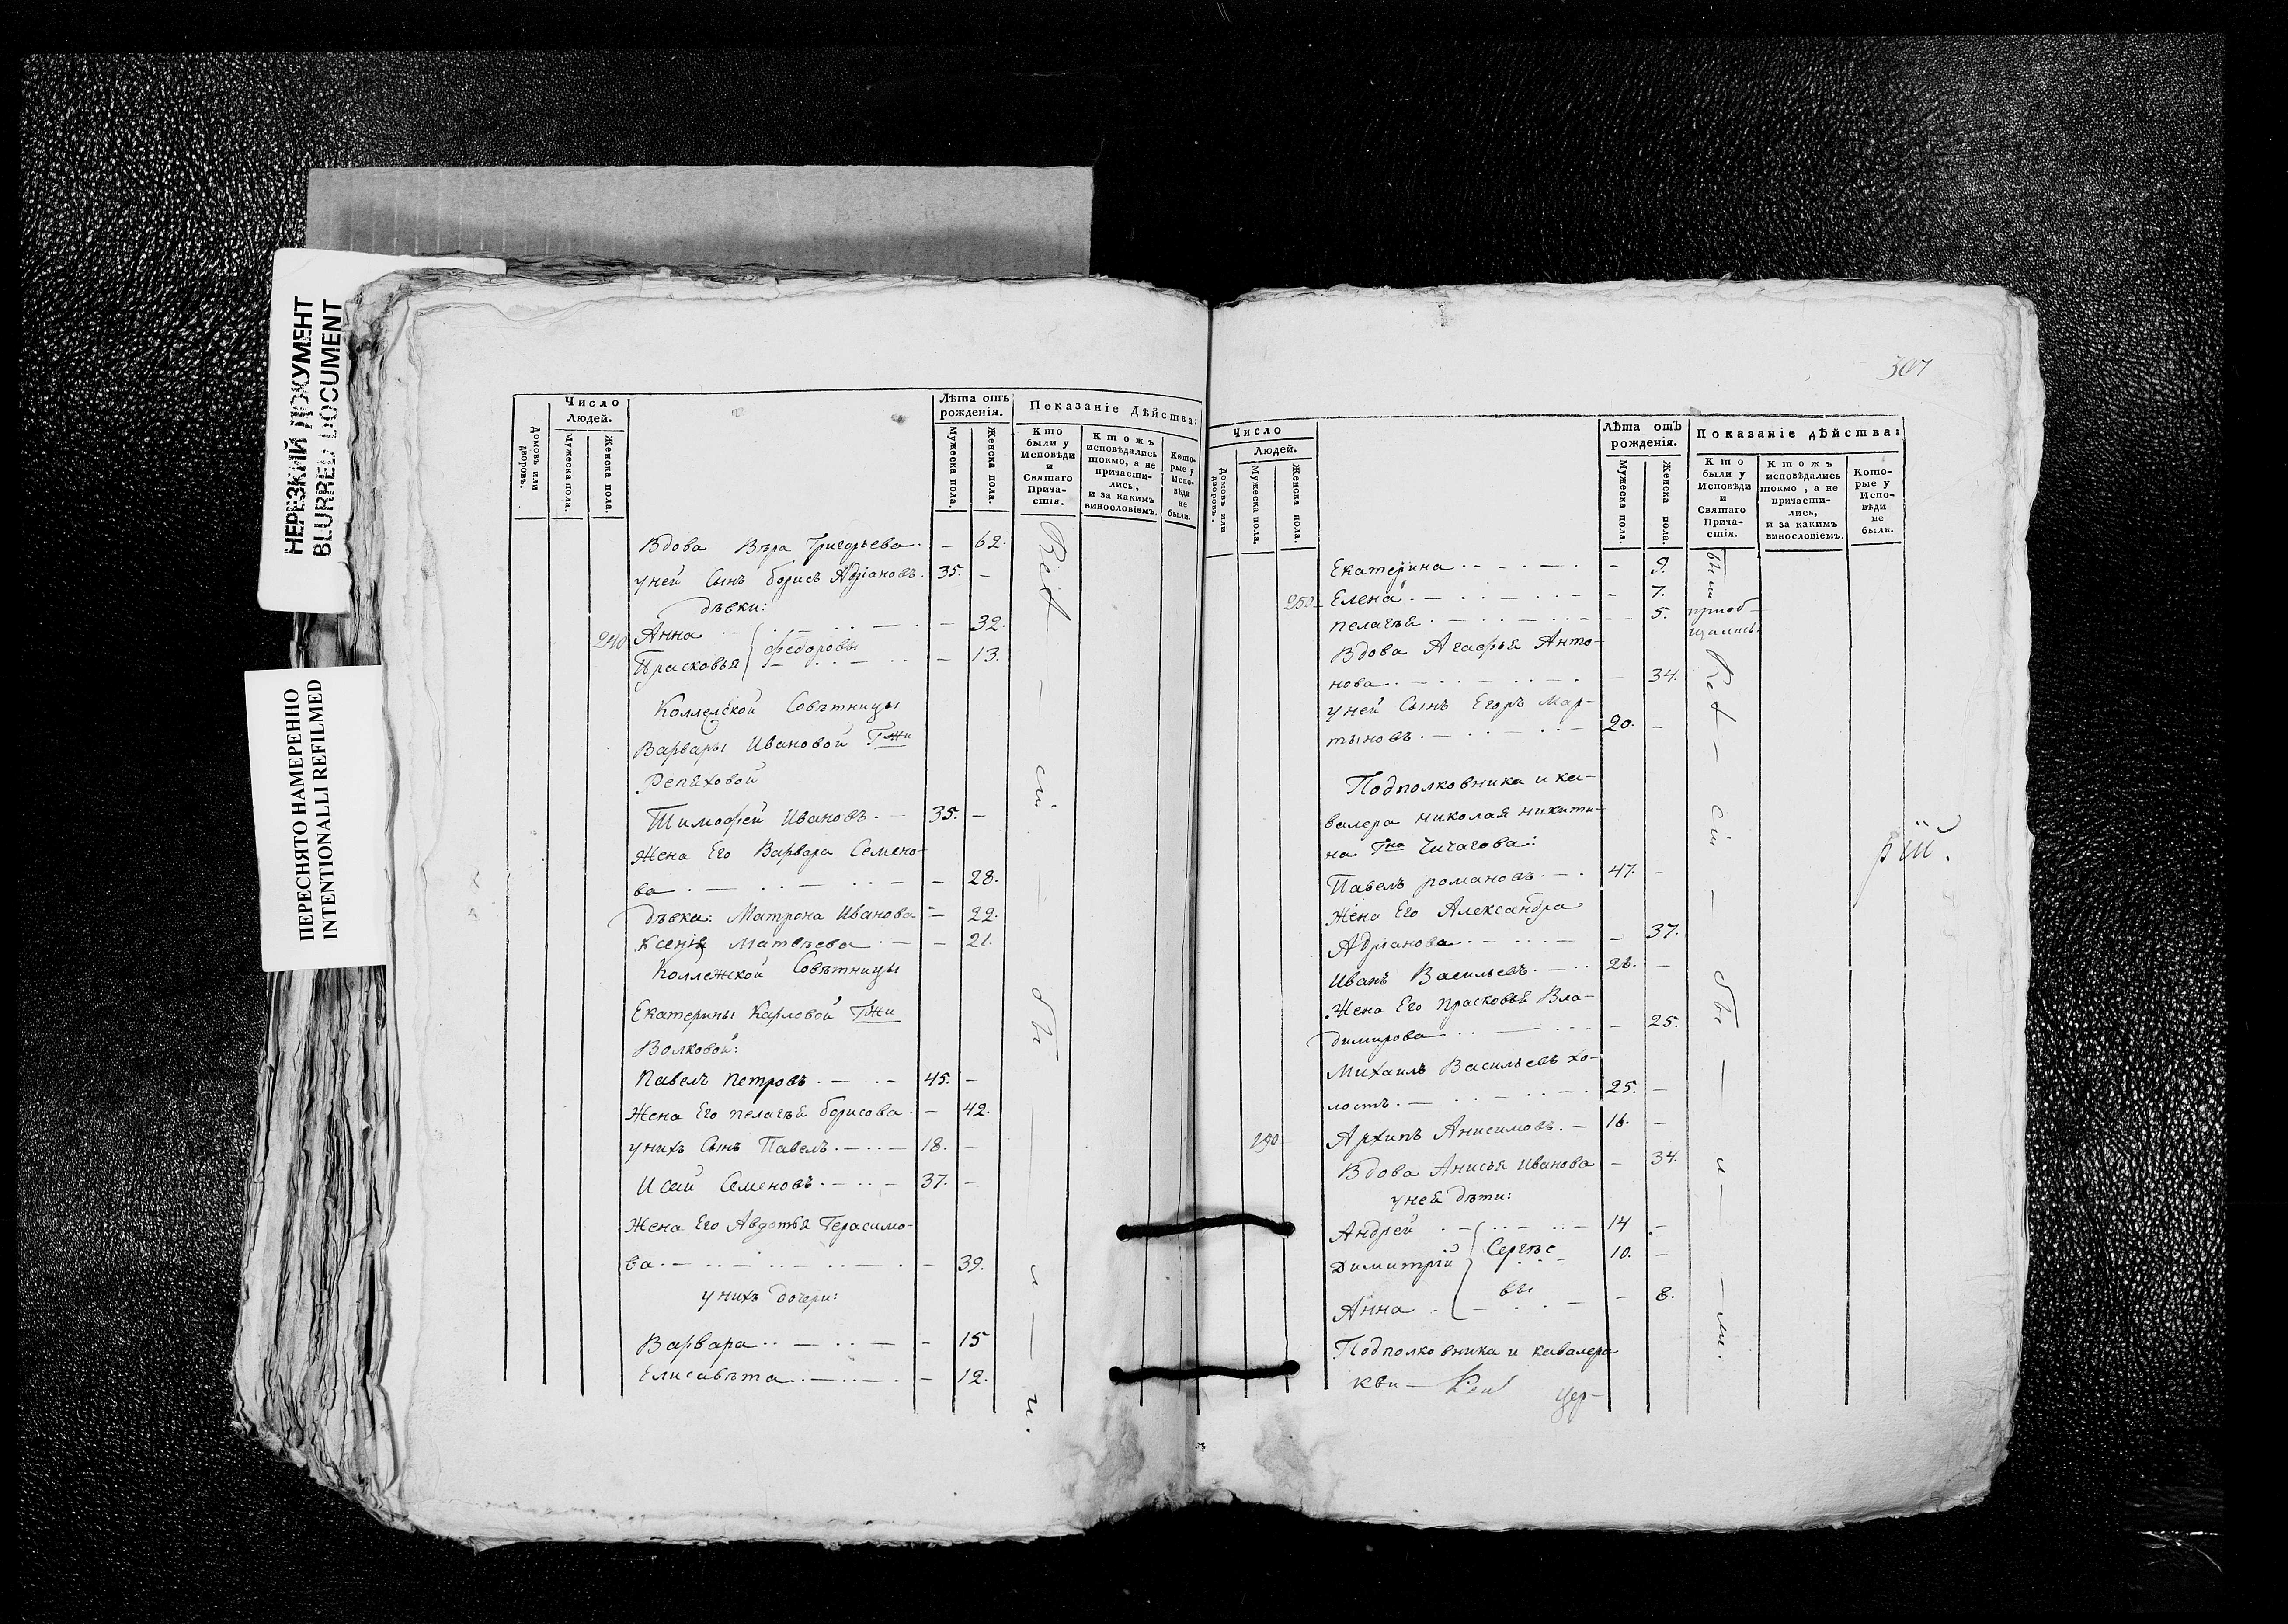 НЕРЕЗКИЙ ДОКУМЕНТ
BLURRED DOCUMENT
ПЕРЕСНЯТО НАМЕРЕННО
INTENTIONALLI REFILMED
Домовъ или дворовъ.
Число
Людей.
Мужеска пола.
Женска пола.
Лѣта отъ
рожденія.
Мужеска пола.
Женска пола.
Показаніе Дѣйства:
Кто
были у
Исповѣди
и
Святаго
Прича-
стія.
Ктожъ
исповѣдались
токмо, а не
причасти-
лись,
и за какимъ
винословіемъ.
Кото-
рые у
Испо-
вѣди
не
были.
Вдова Вѣра Григорьева. – 62.
у ней Сынъ Борисъ Адріановъ. 35. –
дѣвки:
Анна – 32.
240 Прасковья Федоровы – 13.
Коллежской Совѣтницы
Варвары Ивановой Гжи
Репѣховой
Тимофей Ивановъ. – 35. –
Жена Его Варвара Семено-
ва – 28.
дѣвки: Матрона Иванова – 22.
Ксенія Матвѣева – 21.
Коллежской Совѣтницы
Екатерины Карловой Гжи
Волковой:
Павелъ Петровъ. 45. –
Жена Его Пелагѣя Борисова. – 42.
у нихъ Сынъ Павелъ. 18. –
Исай Семеновъ. 37. –
Жена Его Авдотья Герасимо-
ва – 39.
у нихъ дочери:
Варвара – 15
Елисавѣта – 12.
307
Домовъ или дворовъ.
Число
Людей.
Мужеска пола.
Женска пола.
Лѣта отъ
рожденія.
Мужеска пола.
Женска пола.
Показаніе дѣйства:
Кто
были у
Исповѣди
и
Святаго
Прича-
стія.
Ктожъ
исповѣдались
токмо, а не
причасти-
лись,
и за какимъ
винословіемъ.
Кото-
рые у
Испо-
вѣди
не
были.
Екатерина – 9.
250 Елена – 7.
Пелагѣя – 5.
были
приоб-
щались.
Вдова Агафья Анто-
нова – 34.
у ней Сынъ Егоръ Мар-
тыновъ. 20. –
Подполковника и ка-
валера Николая Никити-
на Гна Чичагова:
Павелъ Романовъ. 47. –
Жена Его Александра
Адріанова – 37.
Иванъ Васильевъ. 28. –
Жена Его Прасковья Вла-
димирова – 25.
Михаилъ Васильевъ хо-
лостъ. 25. –
190 Архипъ Анисимовъ. 16. –
Вдова Анисья Иванова – 34.
у нея дѣти:
Андрей 14 –
Димитрій Сергѣе 10. –
Анна вы – 8.
Подполковника и кавалера
рій.
кви
Цер-